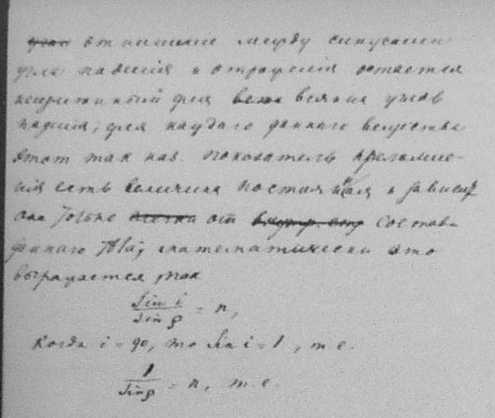 отношение между синусами
угла паденія и отраженія остается
неизменный для всяких углов
паденія; для каждаго даннаго вещества
этот так наз. показатель преломле-
нія есть величина постоянная и зависит
она только от состава
даннаго тѣла; математически это
выражается так
Sin i / Sin ρ = n,
когда i = 90, то Sin i = 1, т.е.
1 / Sin ρ = n, т.е.